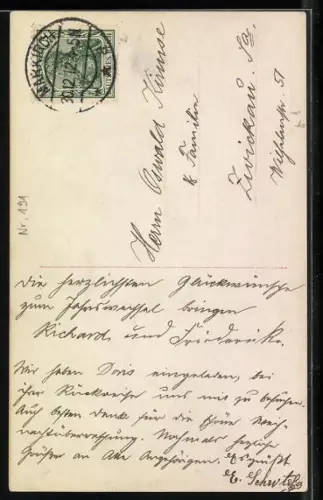 MARKIRCH
30.12.12. 5-6N
Herrn Oswald
& Familie
Zwickau. Sa.
Nr. 191
Die herzlichsten Glückwünsche
zum Jahrswechsel bringen
Richard und Friederik.
Wir haben Doris eingeladen, bei
ihrer Rückreise uns mit zu besuchen.
Auch besten Dank für die schöne Weih-
nachtüberraschung. Nochmals herzliche
Grüße an Alle Angehörigen. Es grüßt
E.